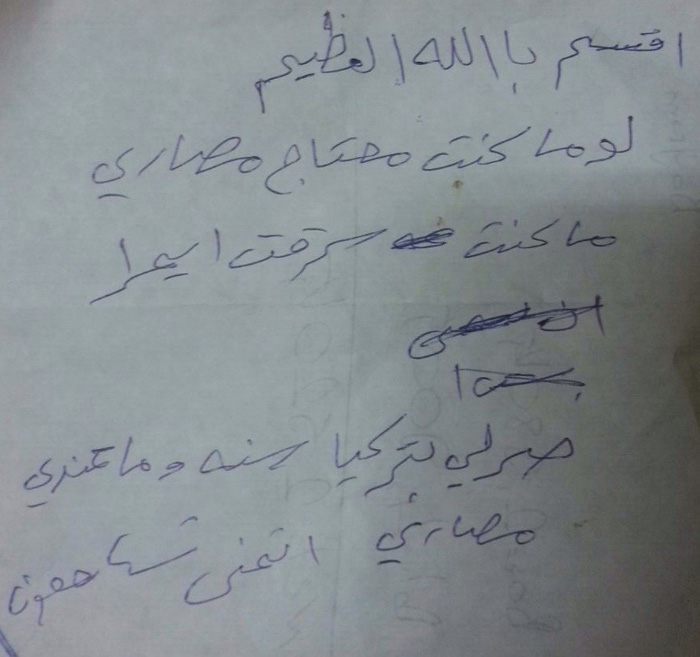 اقسم باالله العظيم
لو ما كنت محتاج مصاري
ما كنت سرقت
صرلي بتركيا سنه وما عندي
مصاري اتمنى تسامحون